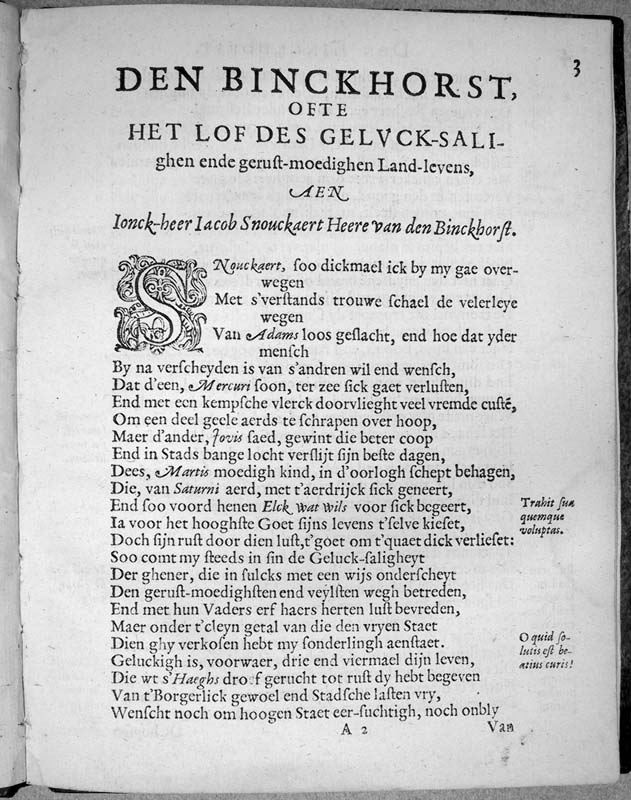 3
DEN BINCKHORST,
OFTE
HET LOF DES GELVCK-SALI-
ghen ende geruſt-moedighen Land-levens,
AEN
Ionck-heer Iacob Snouckaert Heere van den Binckhorſt.
SNouckaert, ſoo dickmael ick by my gae over-
wegen
Met s'verſtands trouwe ſchael de velerleye
wegen
Van Adams loos geſlacht, end hoe dat yder
menſch
By na verſcheyden is van s'andren wil end wenſch,
Dat d'een, Mercuri ſoon, ter zee ſick gaet verluſten,
End met een kempſche vlerck doorvlieght veel vremde cuſtē,
Om een deel geele aerds te ſchrapen over hoop,
Maer d'ander, Jovis ſaed, gewint die beter coop
End in Stads bange locht verſlijt ſijn beſte dagen,
Dees, Martis moedigh kind, in d'oorlogh ſchept behagen,
Die, van Saturni aerd, met t'aerdrijck ſick geneert,
End ſoo voord henen Elck wat wils voor ſick begeert,
Ia voor het hooghſte Goet ſijns levens t'ſelve kieſet,
Doch ſijn ruſt door dien luſt, t'goet om t'quaet dick verlieſet:
Trahit ſua
quemque
voluptas.
Soo comt my ſteeds in ſin de Geluck-ſaligheyt
Der ghener, die in ſulcks met een wijs onderſcheyt
Den geruſt-moedighſten end veylſten wegh betreden,
End met hun Vaders erf haers herten luſt bevreden,
Maer onder t'cleyn getal van die den vryen Staet
Dien ghy verkoſen hebt my ſonderlingh aenſtaet.
Geluckigh is, voorwaer, drie end viermael dijn leven,
O quid ſo-
lutis eſt be-
atius curis!
Die wt s'Haeghs droef gerucht tot ruſt dy hebt begeven
Van t'Borgerlick gewoel end Stadſche laſten vry,
Wenſcht noch om hoogen Staet eer-ſuchtigh, noch onbly
A 2
Van